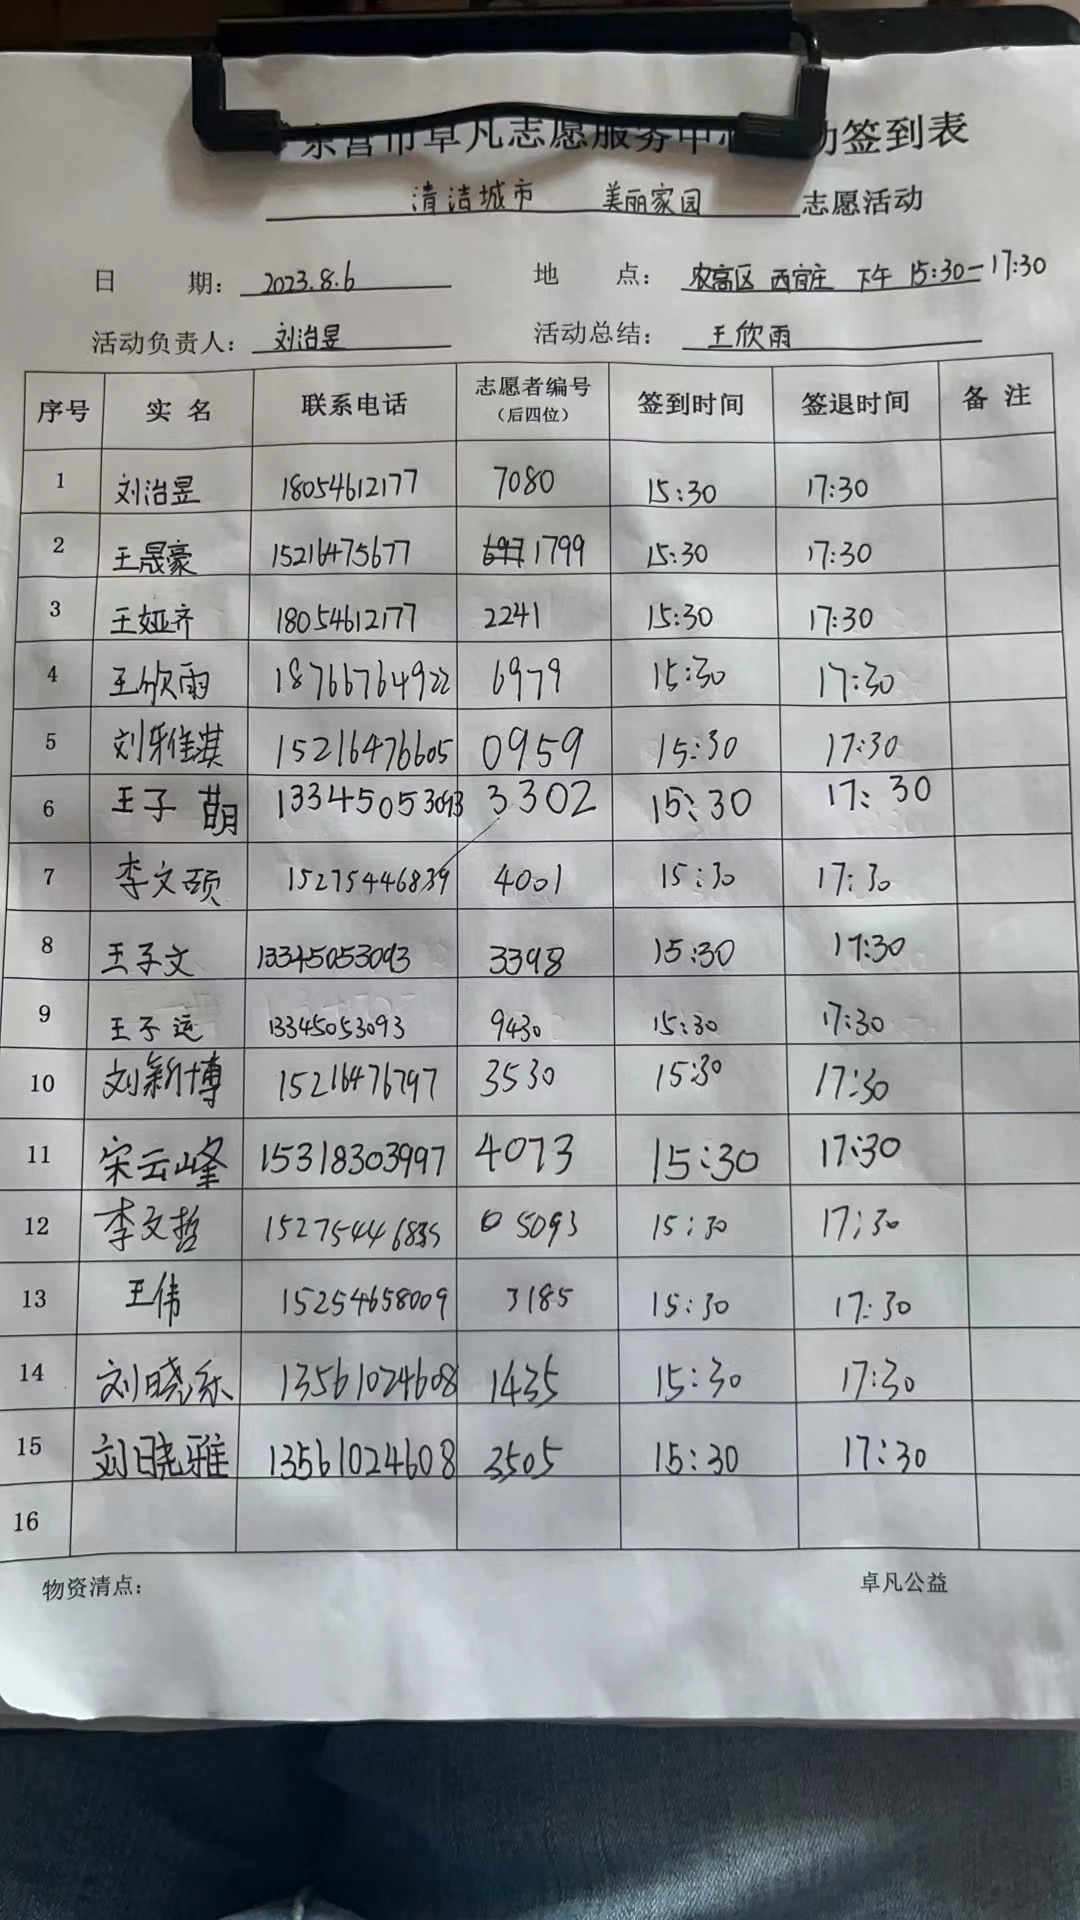 东营市卓凡志愿服务中心 动签到表
清洁城市 美丽家园 志愿活动
日 期: 2023.8.6 地 点: 农高区 西宿庄 下午 15:30-17:30
活动负责人: 刘治昱 活动总结: 王欣雨
序号 实 名 联系电话 志愿者编号(后四位) 签到时间 签退时间 备 注
1 刘治昱 18054612177 7080 15:30 17:30
2 王晟豪 15216475677 1799 15:30 17:30
3 王娅齐 18054612177 2241 15:30 17:30
4 王欣雨 18766764922 6979 15:30 17:30
5 刘雅淇 15216476605 0959 15:30 17:30
6 王子萌 13345053093 3302 15:30 17:30
7 李文硕 15275446839 4001 15:30 17:30
8 王子文 13345053093 3398 15:30 17:30
9 王子远 13345053093 9430 15:30 17:30
10 刘新博 15216476797 3530 15:30 17:30
11 宋云峰 15318303997 4073 15:30 17:30
12 李文哲 15275446839 5093 15:30 17:30
13 王伟 15254658009 3185 15:30 17:30
14 刘晓乐 13561024608 1435 15:30 17:30
15 刘晓雅 13561024608 3505 15:30 17:30
16
物资清点: 卓凡公益